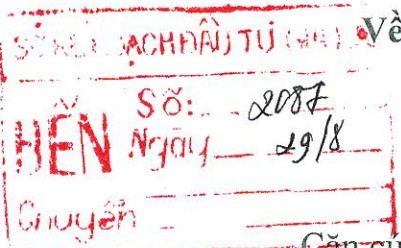 SỞ KẾ HOẠCH ĐẦU TƯ Về
ĐẾN Số: 2087
Ngày 29/8
Chuyển
Căn cứ